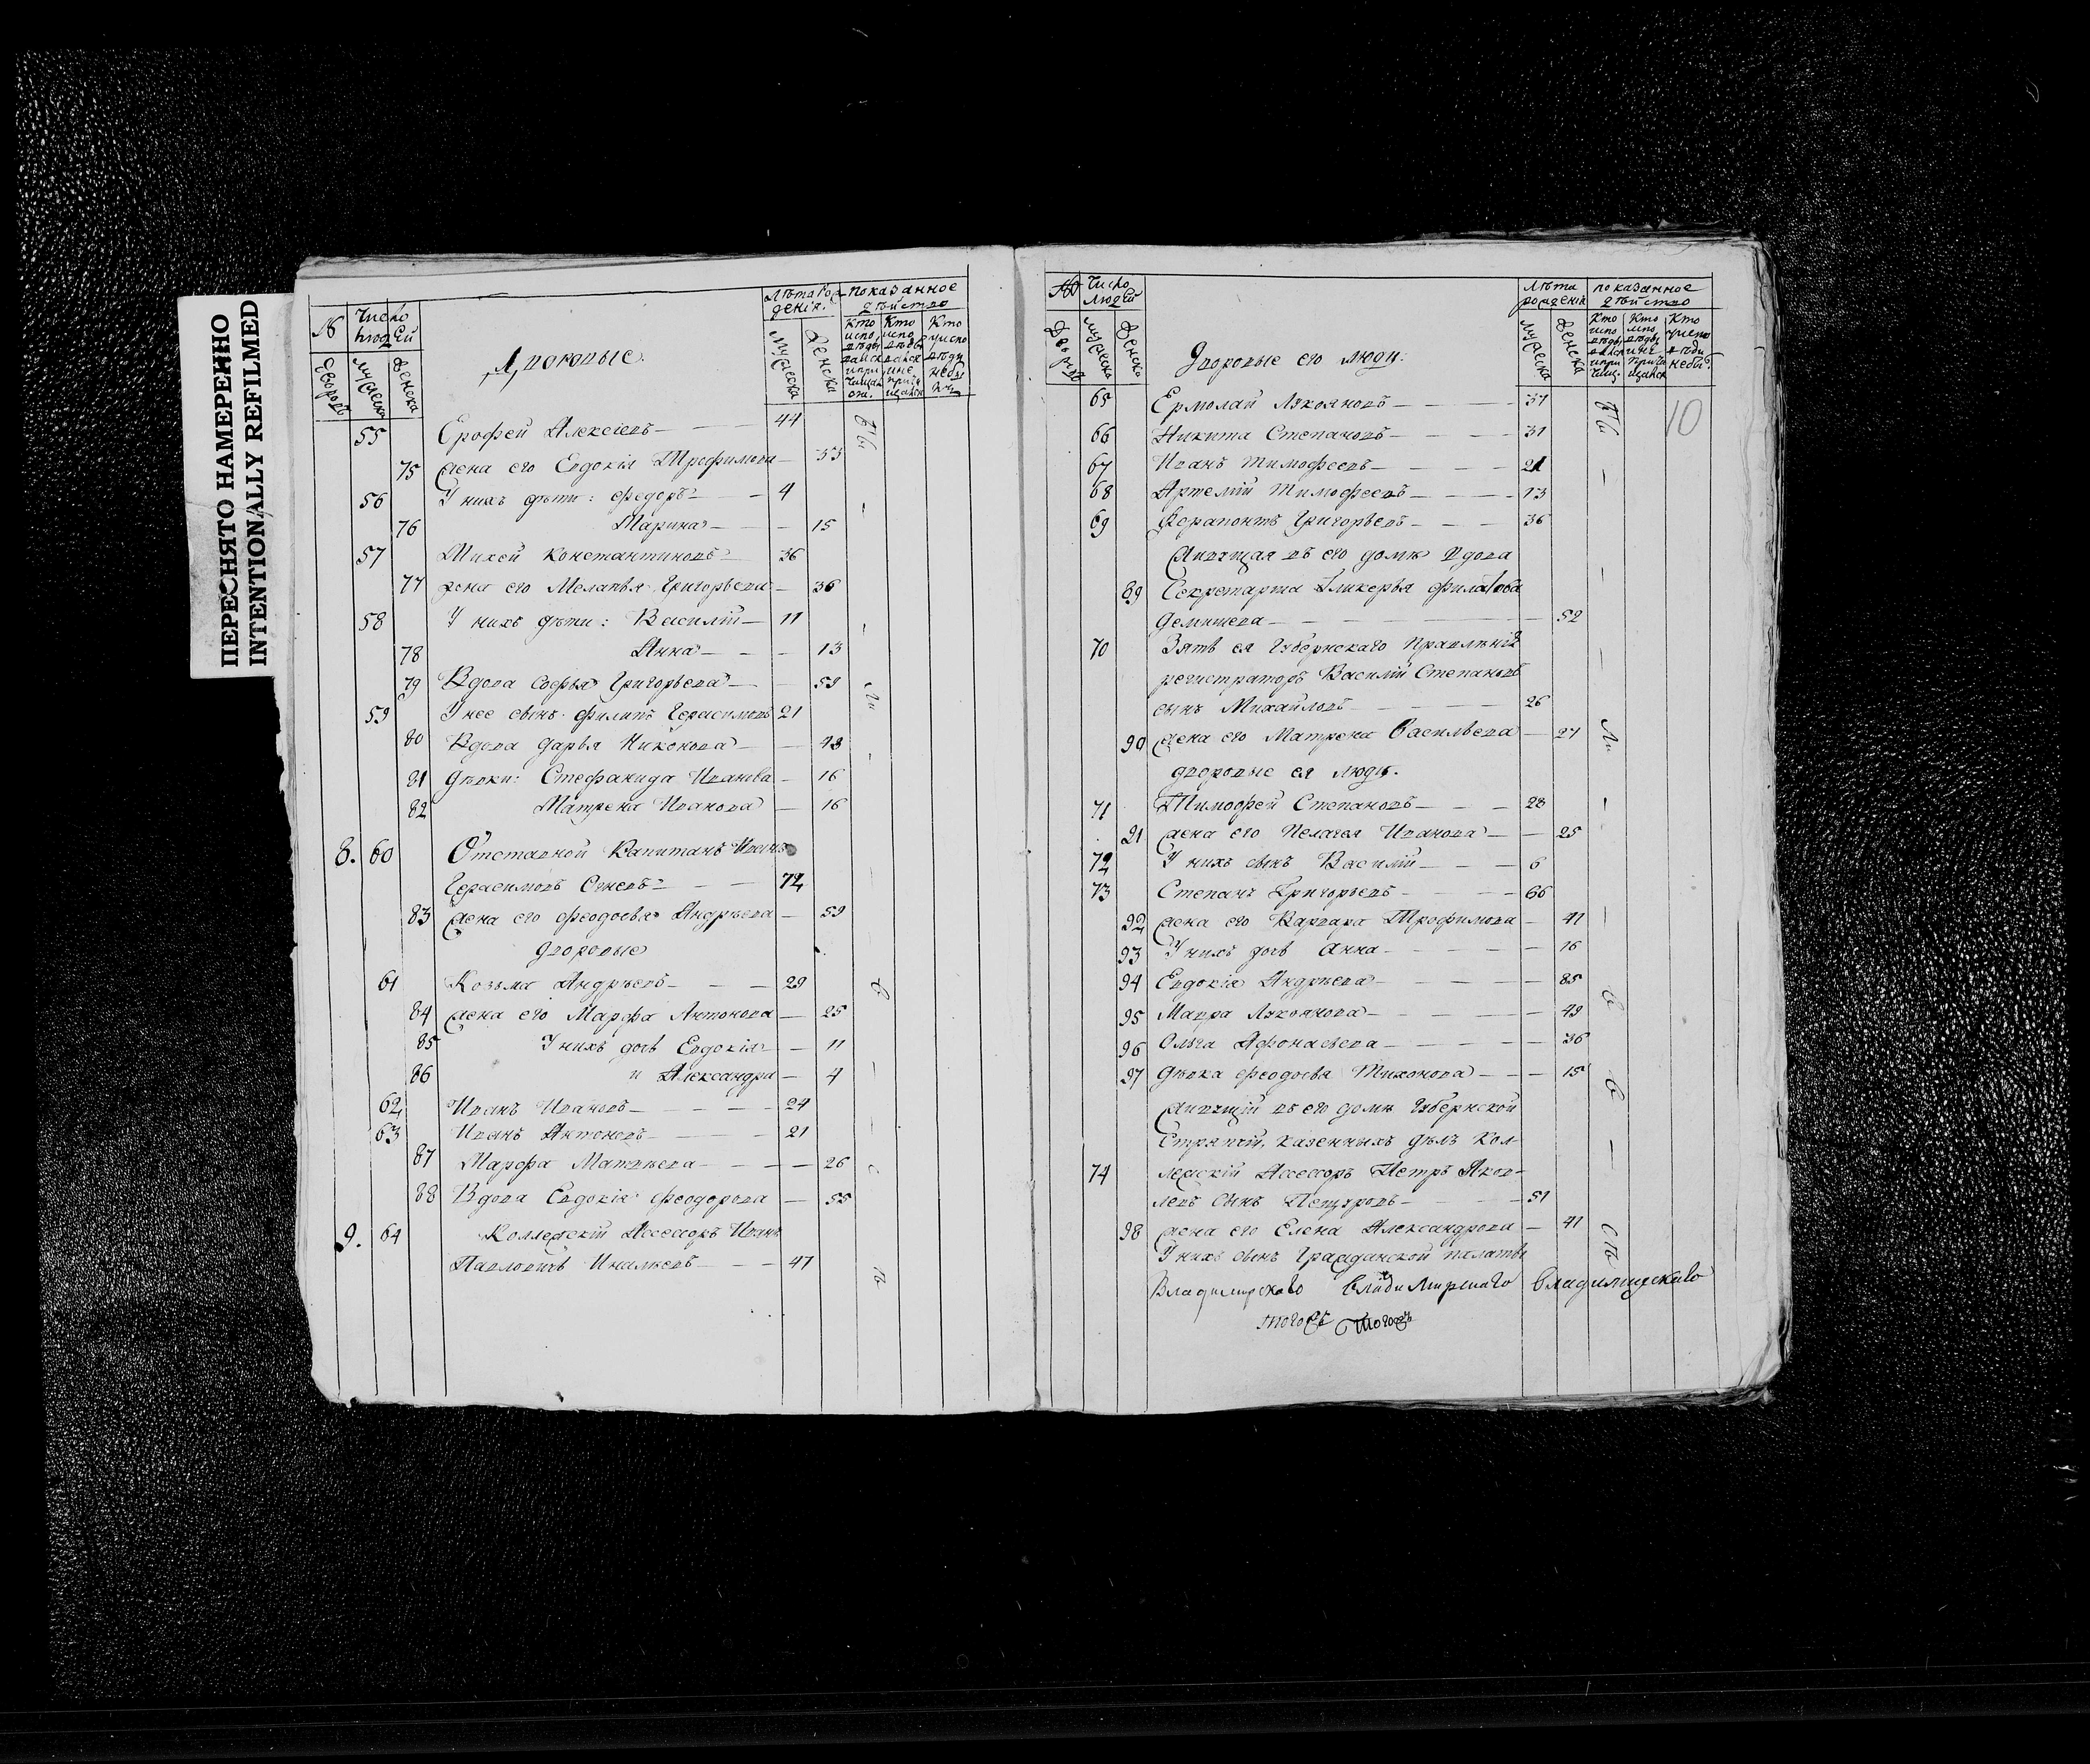 ПЕРЕСНЯТО НАМЕРЕННО
INTENTIONALLY REFILMED
№ Число людей
Лѣта рождения. показанное дѣйство
дворовъ мужеска женска
мужеска женска
Дворовые.
55 Ерофей Алексѣевъ — 44
75 Жена его Евдокія Трофимова — 33
56 У нихъ дѣти: Федоръ — 4
76 Марина — 15
57 Михей Константиновъ 36
77 Жена его Меланья Григорьева — 36
58 У нихъ дѣти: Василій — 11
78 Анна — 13
79 Вдова Софья Григорьева — 59
59 У нее сынъ Филипъ Герасимовъ 21
80 Вдова Дарья Никонова — 48
81 Дѣвки: Стефанида Иванова — 16
82 Матрена Иванова — 16
8. 60 Отставной Капитанъ Иванъ
Герасимовъ Огневъ — 72
83 Жена его Феодосья Андрѣева — 59
Дворовые
61 Козьма Андрѣевъ — 29
84 Жена его Марфа Антонова — 25
85 У нихъ дочь Евдокія — 11
86 и Александра — 4
62 Иванъ Ивановъ — 24
63 Иванъ Антоновъ — 21
87 Марфа Матвѣева — 26
88 Вдова Евдокія Феодорова — 55
9. 64 Коллежскій Ассесоръ Иванъ
Павловичъ — 47
№ Число людей
Лѣта рожденія показанное дѣйство
дворовъ мужеска женска
мужеска женска
Дворовые его люди.
10
65 Ермолай Лукояновъ — 37
66 Никита Степановъ — 31
67 Иванъ Тимофеевъ — 21
68 Артемій Тимофеевъ — 13
69 Ферапонтъ Григорьевъ — 36
Живущая въ его домѣ вдова
89 Секретарша Гликерья Филатова
Демишева — 52
70 Зять ея Губернскаго Правленія
регистраторъ Василій Степановъ
сынъ Михайловъ — 26
90 Жена его Матрена Васильева — 27
Дворовые ея люди.
71 Тимофей Степановъ — 28
91 Жена его Пелагея Иванова — 25
72 У нихъ сынъ Василій — 6
73 Степанъ Григорьевъ — 66
92 Жена его Варвара Трофимова — 41
93 У нихъ дочь Анна — 16
94 Евдокія Андрѣева — 85
95 Мавра Лукоянова — 49
96 Ольга Афонасьева — 36
97 Дѣвка Феодосья Тихонова — 15
Живущій въ его домѣ Губернской
Стряпчій, казенныхъ дѣлъ Кол-
74 лежскій Ассесоръ Петръ Яков-
левъ сынъ — 51
98 Жена его Елена Александрова — 41
У нихъ сынъ Гражданской палаты
Владимирскаго Владимирскаго Владимирскаго